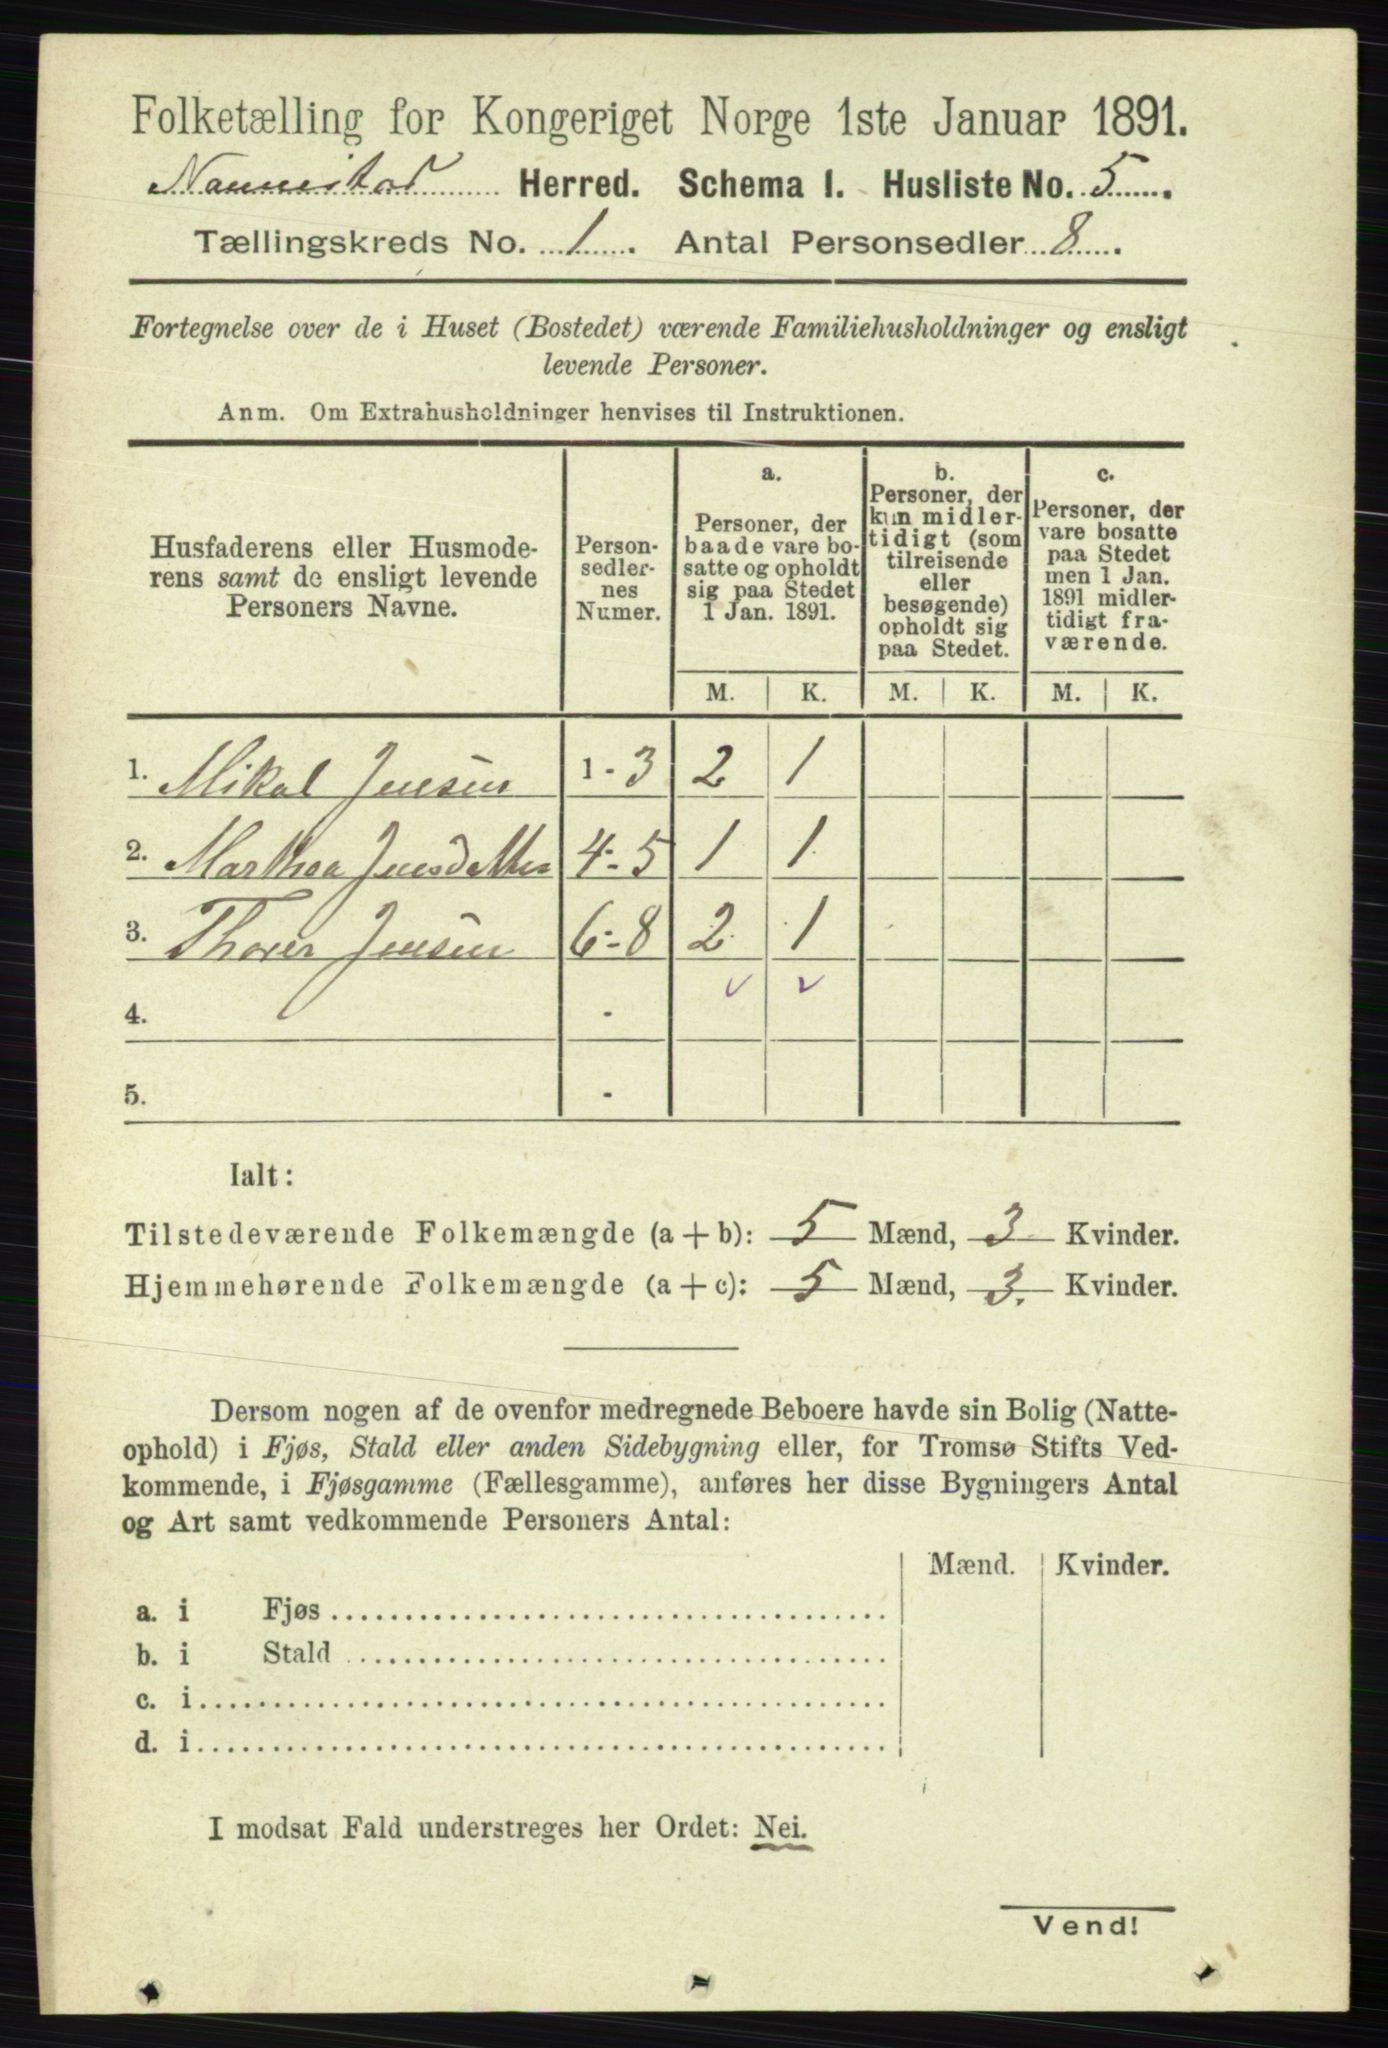 Folketælling for Kongeriget Norge 1ste Januar 1891.
Nannestad Herred. Schema I. Husliste No. 5
Tællingskreds No. 1. Antal Personsedler 8.
Fortegnelse over de i Huset (Bostedet) værende Familiehusholdninger og ensligt
levende Personer.
Anm. Om Extrahusholdninger henvises til Instruktionen.
Husfaderens eller Husmode-
rens samt de ensligt levende
Personers Navne.
Person-
sedler-
nes
Numer.
a.
Personer, der
baade vare bo-
satte og opholdt
sig paa Stedet
1 Jan. 1891.
b.
Personer, der
kun midler-
tidigt (som
tilreisende
eller
besøgende)
opholdt sig
paa Stedet.
c.
Personer, der
vare bosatte
paa Stedet
men 1 Jan.
1891 midler-
tidigt fra-
værende.
M. K. M. K. M. K.
1. Mikal Jensen 1 - 3 2 1
2. Marthea Jensdatter 4 - 5 1 1
3. Thorer Jensen 6 - 8 2 1
4. -
5. -
Ialt:
Tilstedeværende Folkemængde (a + b): 5 Mænd, 3 Kvinder.
Hjemmehørende Folkemængde (a + c): 5 Mænd, 3. Kvinder.
Dersom nogen af de ovenfor medregnede Beboere havde sin Bolig (Natte-
ophold) i Fjøs, Stald eller anden Sidebygning eller, for Tromsø Stifts Ved-
kommende, i Fjøsgamme (Fællesgamme), anføres her disse Bygningers Antal
og Art samt vedkommende Personers Antal:
Mænd. Kvinder.
a. i Fjøs
b. i Stald
c. i
d. i
I modsat Fald understreges her Ordet: Nei.
Vend!